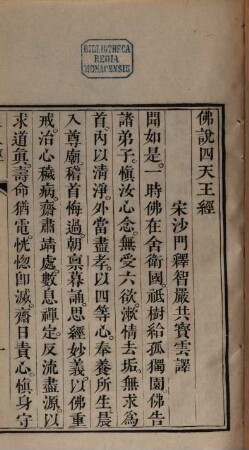 BIBLIOTHECA
REGIA
MONACENSIS
佛說四天王經
宋沙門釋智嚴共寶雲譯
聞如是。一時佛在舍衛國。祇樹給孤獨園。佛告
諸弟子。慎汝心念。無受六欲。漱情去垢。無求為
首。內以清淨。外當盡孝。以四等心。奉養所生。晨
入尊廟。稽首悔過。朝稟暮誦。思經妙義。以佛重
戒。治心穢病。齋肅靖處。數息禪定。反流盡源。以
求道真。壽命猶電。恍惚即滅。齋日責心。慎身守